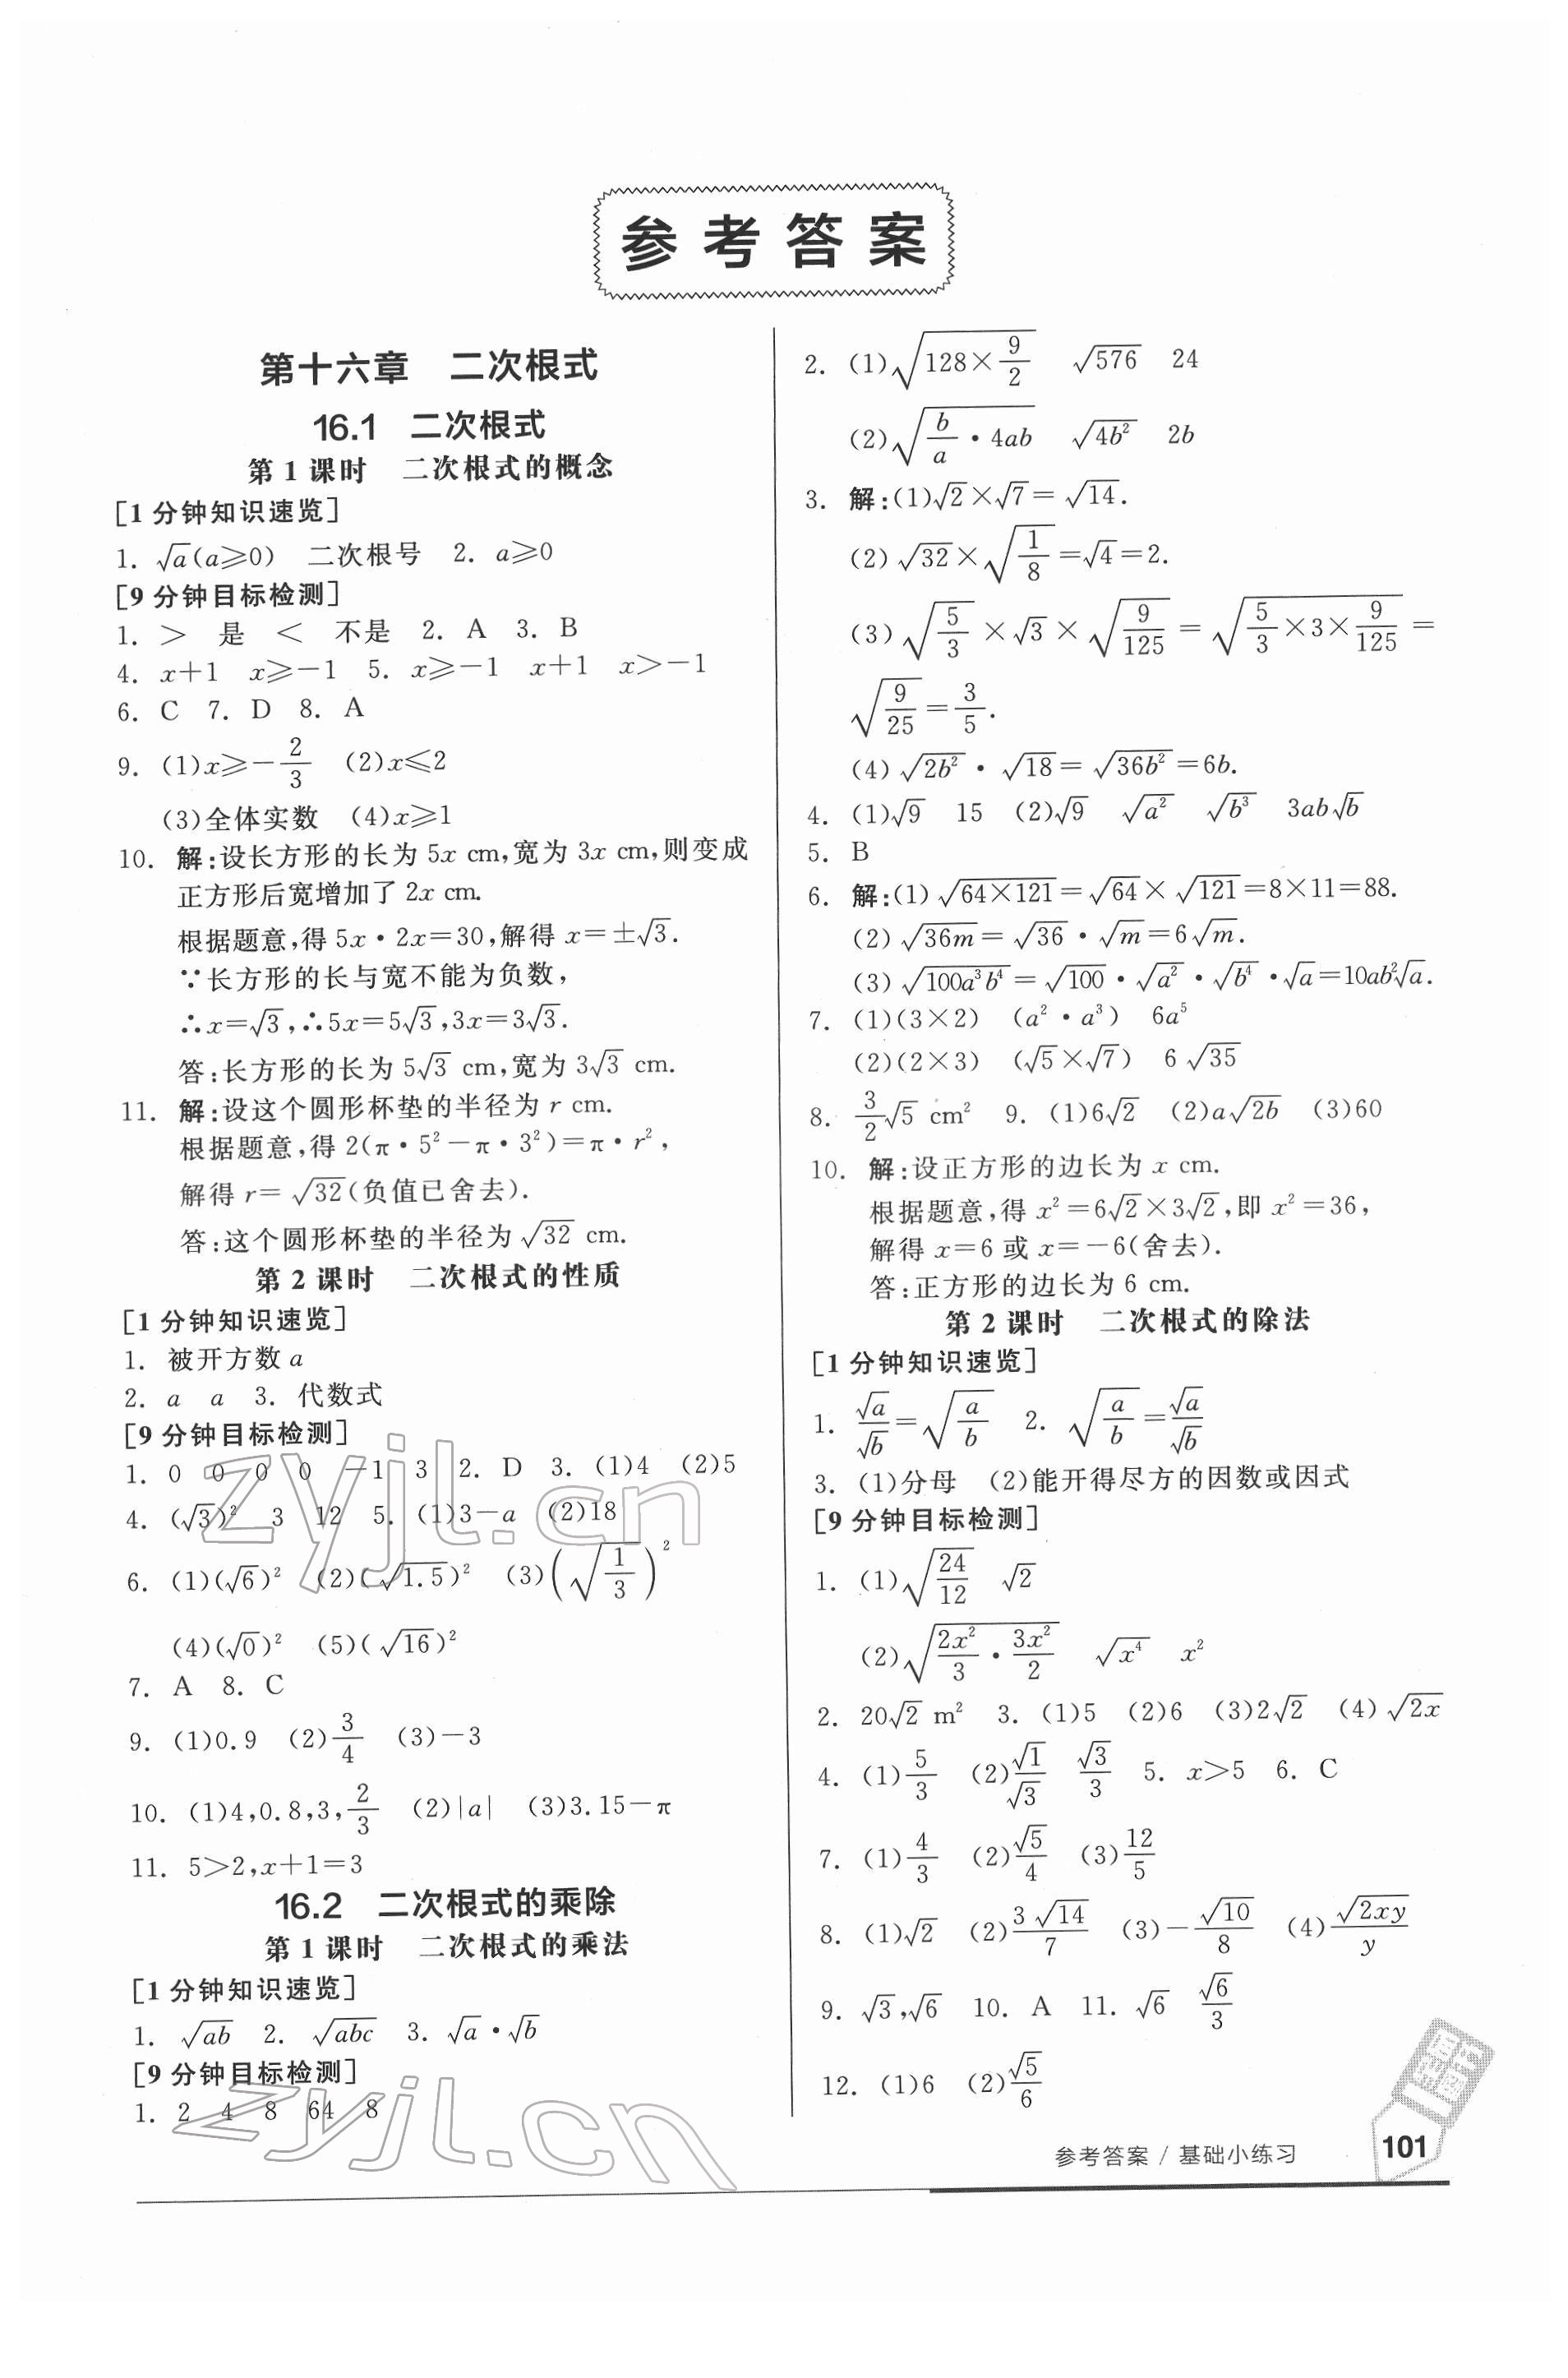 参考答案
第十六章 二次根式
16.1 二次根式
第 1 课时 二次根式的概念
[1 分钟知识速览]
1. √a(a≥0) 二次根号 2. a≥0
[9 分钟目标检测]
1. > 是 < 不是 2. A 3. B
4. x+1 x≥-1 5. x≥-1 x+1 x>-1
6. C 7. D 8. A
9. (1)x≥-2/3 (2)x≤2
(3)全体实数 (4)x≥1
10. 解:设长方形的长为 5x cm,宽为 3x cm,则变成
正方形后宽增加了 2x cm.
根据题意,得 5x·2x=30,解得 x=±√3.
∵长方形的长与宽不能为负数,
∴x=√3,∴5x=5√3,3x=3√3.
答:长方形的长为 5√3 cm,宽为 3√3 cm.
11. 解:设这个圆形杯垫的半径为 r cm.
根据题意,得 2(π·5²-π·3²)=π·r²,
解得 r=√32(负值已舍去).
答:这个圆形杯垫的半径为 √32 cm.
第 2 课时 二次根式的性质
[1 分钟知识速览]
1. 被开方数 a
2. a a 3. 代数式
[9 分钟目标检测]
1. 0 0 0 0 -1 3 2. D 3. (1)4 (2)5
4. (√3)² 3 12 5. (1)3-a (2)18
6. (1)(√6)² (2)(√1.5)² (3)(√(1/3))²
(4)(√0)² (5)(√16)²
7. A 8. C
9. (1)0.9 (2)3/4 (3)-3
10. (1)4,0.8,3,2/3 (2)|a| (3)3.15-π
11. 5>2,x+1=3
16.2 二次根式的乘除
第 1 课时 二次根式的乘法
[1 分钟知识速览]
1. √(ab) 2. √(abc) 3. √a·√b
[9 分钟目标检测]
1. 2 4 8 64 8
2. (1)√(128×9/2) √576 24
(2)√(b/a·4ab) √(4b²) 2b
3. 解:(1)√2×√7=√14.
(2)√32×√(1/8)=√4=2.
(3)√(5/3)×√3×√(9/125)=√(5/3×3×9/125)=
√(9/25)=3/5.
(4)√(2b²)·√18=√(36b²)=6b.
4. (1)√9 15 (2)√9 √(a²) √(b³) 3ab√b
5. B
6. 解:(1)√(64×121)=√64×√121=8×11=88.
(2)√(36m)=√36·√m=6√m.
(3)√(100a³b⁴)=√100·√(a²)·√(b⁴)·√a=10ab²√a.
7. (1)(3×2) (a²·a³) 6a⁵
(2)(2×3) (√5×√7) 6√35
8. 3/2√5 cm² 9. (1)6√2 (2)a√(2b) (3)60
10. 解:设正方形的边长为 x cm.
根据题意,得 x²=6√2×3√2,即 x²=36,
解得 x=6 或 x=-6(舍去).
答:正方形的边长为 6 cm.
第 2 课时 二次根式的除法
[1 分钟知识速览]
1. √a/√b=√(a/b) 2. √(a/b)=√a/√b
3. (1)分母 (2)能开得尽方的因数或因式
[9 分钟目标检测]
1. (1)√(24/12) √2
(2)√(2x²/3·3x²/2) √(x⁴) x²
2. 20√2 m² 3. (1)5 (2)6 (3)2√2 (4)√(2x)
4. (1)5/3 (2)√1/√3 √3/3 5. x>5 6. C
7. (1)4/3 (2)√5/4 (3)12/5
8. (1)√2 (2)3√14/7 (3)-√10/8 (4)√(2xy)/y
9. √3,√6 10. A 11. √6 √6/3
12. (1)6 (2)√5/6
参考答案 / 基础小练习 101
zyjl.cn
zyjl.cn